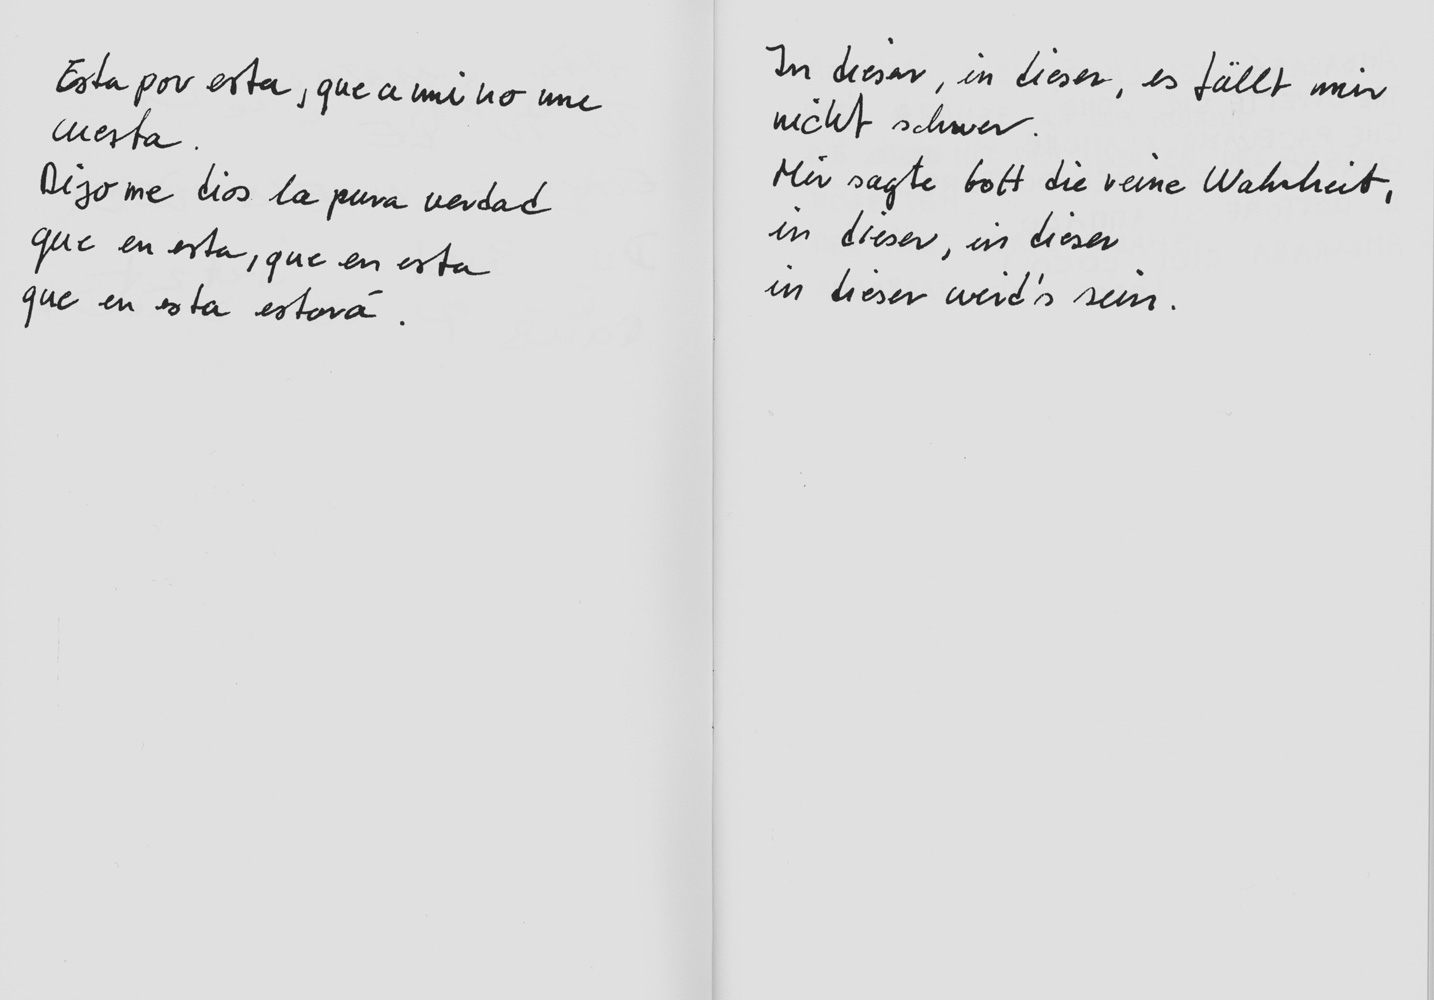 Esta por esta, que a mi no me
cuesta.
Dijo me dios la pura verdad
que en esta, que en esta
que en esta estará.
In dieser, in dieser, es fällt mir
nicht schwer.
Mir sagte Gott die reine Wahrheit,
in dieser, in dieser
in dieser wird's sein.